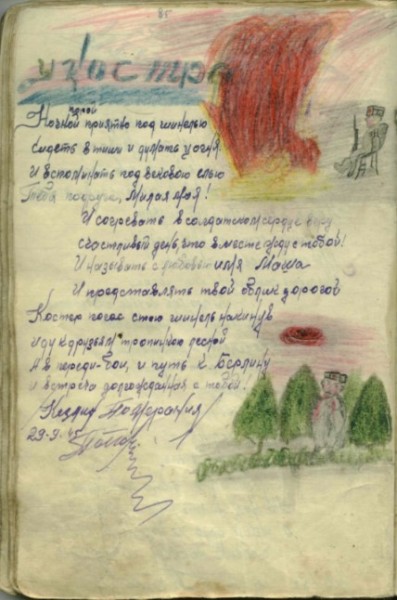 85
у костра
порой
Ночной приятно под шинелью
Сидеть в тиши и думать у огня
И вспоминать под вековою елью
Тебя подруга, милая моя!
И согревать в солдатском сердце
Счастливый день, что вместе жду с тобой!
И называть с любовью имя Маша
И представлять твой облик дорогой
Костер погас стою шинель накинув
иду к друзьям тропинкою лесной
А в переди бои, и путь к Берлину
и встреча долгожданная с тобой!
Померания
29-9-45